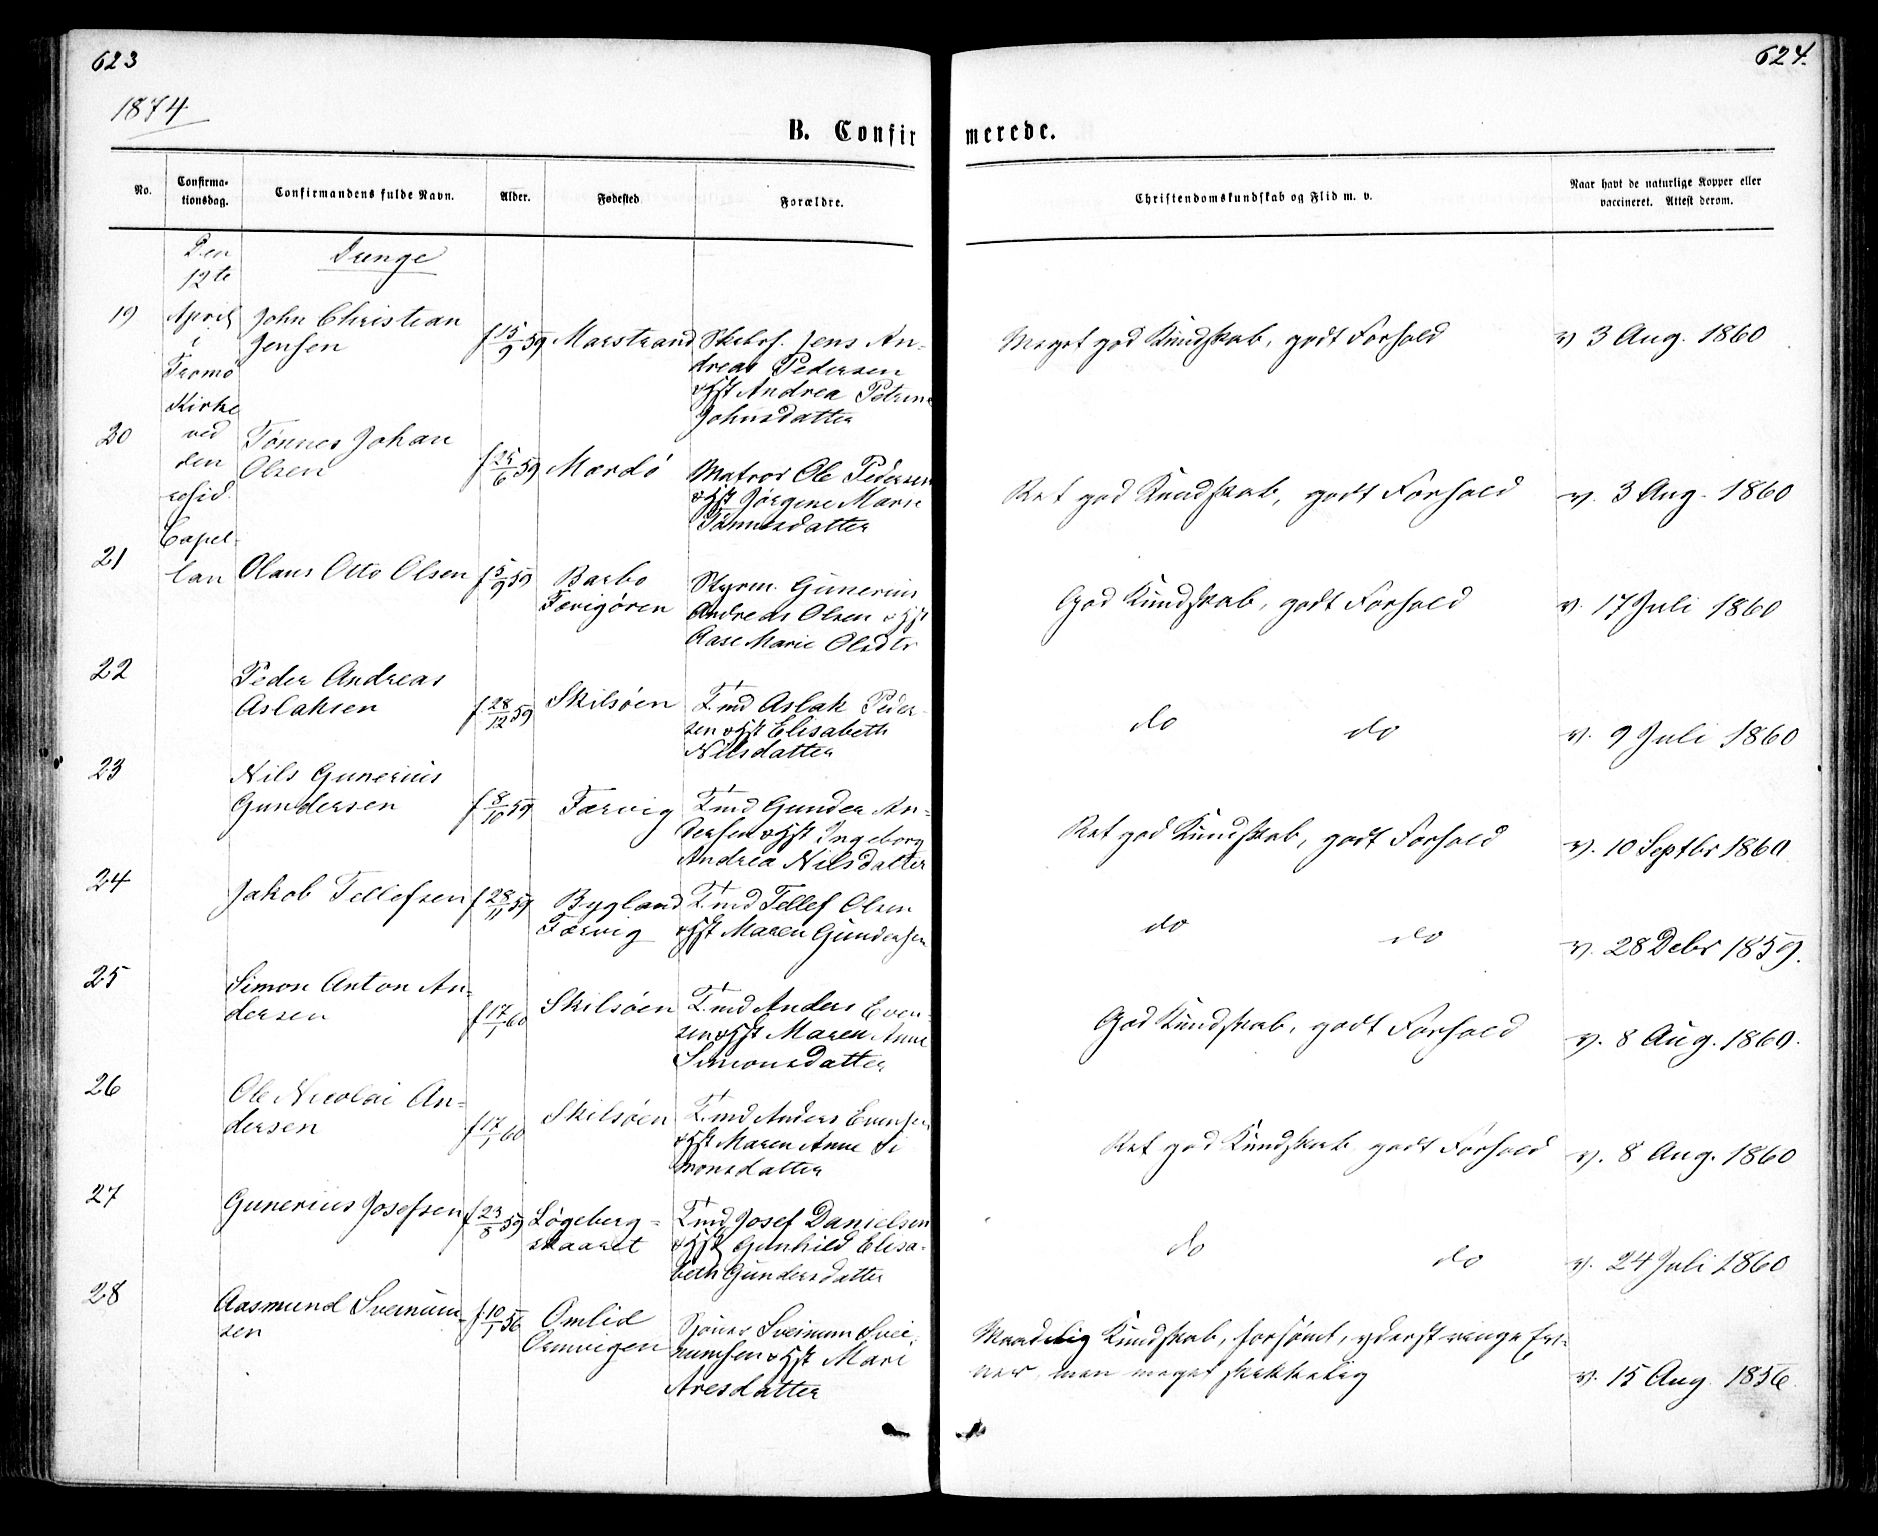 623
624.
1874
B. Confirmerede.
No.
Confirma-
tionsdag.
Confirmandens fulde Navn.
Alder.
Fødested
Forældre.
Christendomskundskab og Flid m. v.
Naar havt de naturlige Kopper eller
vaccineret. Attest derom.
Den
12te
April
i
Tromø
Kirke
ved
den
resid.
Capel-
lan
Drenge
19
John Christian
Jensen
f 15/9 59
Marstrand
Skibsf. Jens An-
dreas Pedersen
o Hst Andrea Petrine
Johnsdatter
Meget god Kundskab, godt Forhold
v 3 Aug. 1860
20
Tønnes Johan
Olsen
f 25/6 59
Mærdø
Matros Ole Pedersen
o Hst Jørgine Marie
Tønnesdatter
Ret god Kundskab, godt Forhold
v. 3 Aug. 1860
21
Olaus Otto Olsen
f 5/9 59
Barbo
Færvigøren
Styrm. Gunerius
Andreas Olsen o Hst
Aase Marie Olsdtr
God Kundskab, godt Forhold
v. 17 Juli 1860
22
Peder Andreas
Aslaksen
f 28/12 59
Skilsøen
Tmd Aslak Peder-
sen o Hst Elisabeth
Nilsdatter
do do
v. 9 Juli 1860
23
Nils Gunerius
Gundersen
f 8/10 59
Færvig
Tmd Gunder An-
dersen o Hst Ingeborg
Andrea Nilsdatter
Ret god Kundskab, godt Forhold
v. 10 Septbr 1860
24
Jakob Tellefsen
f 28/11 59
Bygland
Færvig
Tmd Tellef Olsen
o Hst Maren Gundersen
do do
v. 28 Debr 1859.
25
Simon Anton An-
dersen
f 17/1 60
Skilsøen
Tmd Anders Even-
sen o Hst Maren Anne
Simonsdatter
God Kundskab, godt Forhold
v. 8 Aug. 1860.
26
Ole Nicolai An-
dersen
f 17/1 60
Skilsøen
Tmd Anders Evensen
o Hst Maren Anne Si
monsdatter
Ret god Kundskab godt Forhold
v. 8 Aug. 1860
27
Gunerius Josefsen
f 23/8 59
Løgeberg-
skaaret
Tmd Josef Danielsen
o Hst Gunhild Elisa-
beth Gundersdatter
do do
v. 24 Juli 1860
28
Aasmund Sveinum-
sen
f 10/1 56
Omlid
Ormvigen
Sveinum Svei
numsen o Hst Mari
Aresdatter
Maadelig Kundskab, forsømt, yderst ringe Ev-
ner, men meget skikkelig
v. 15 Aug. 1856.